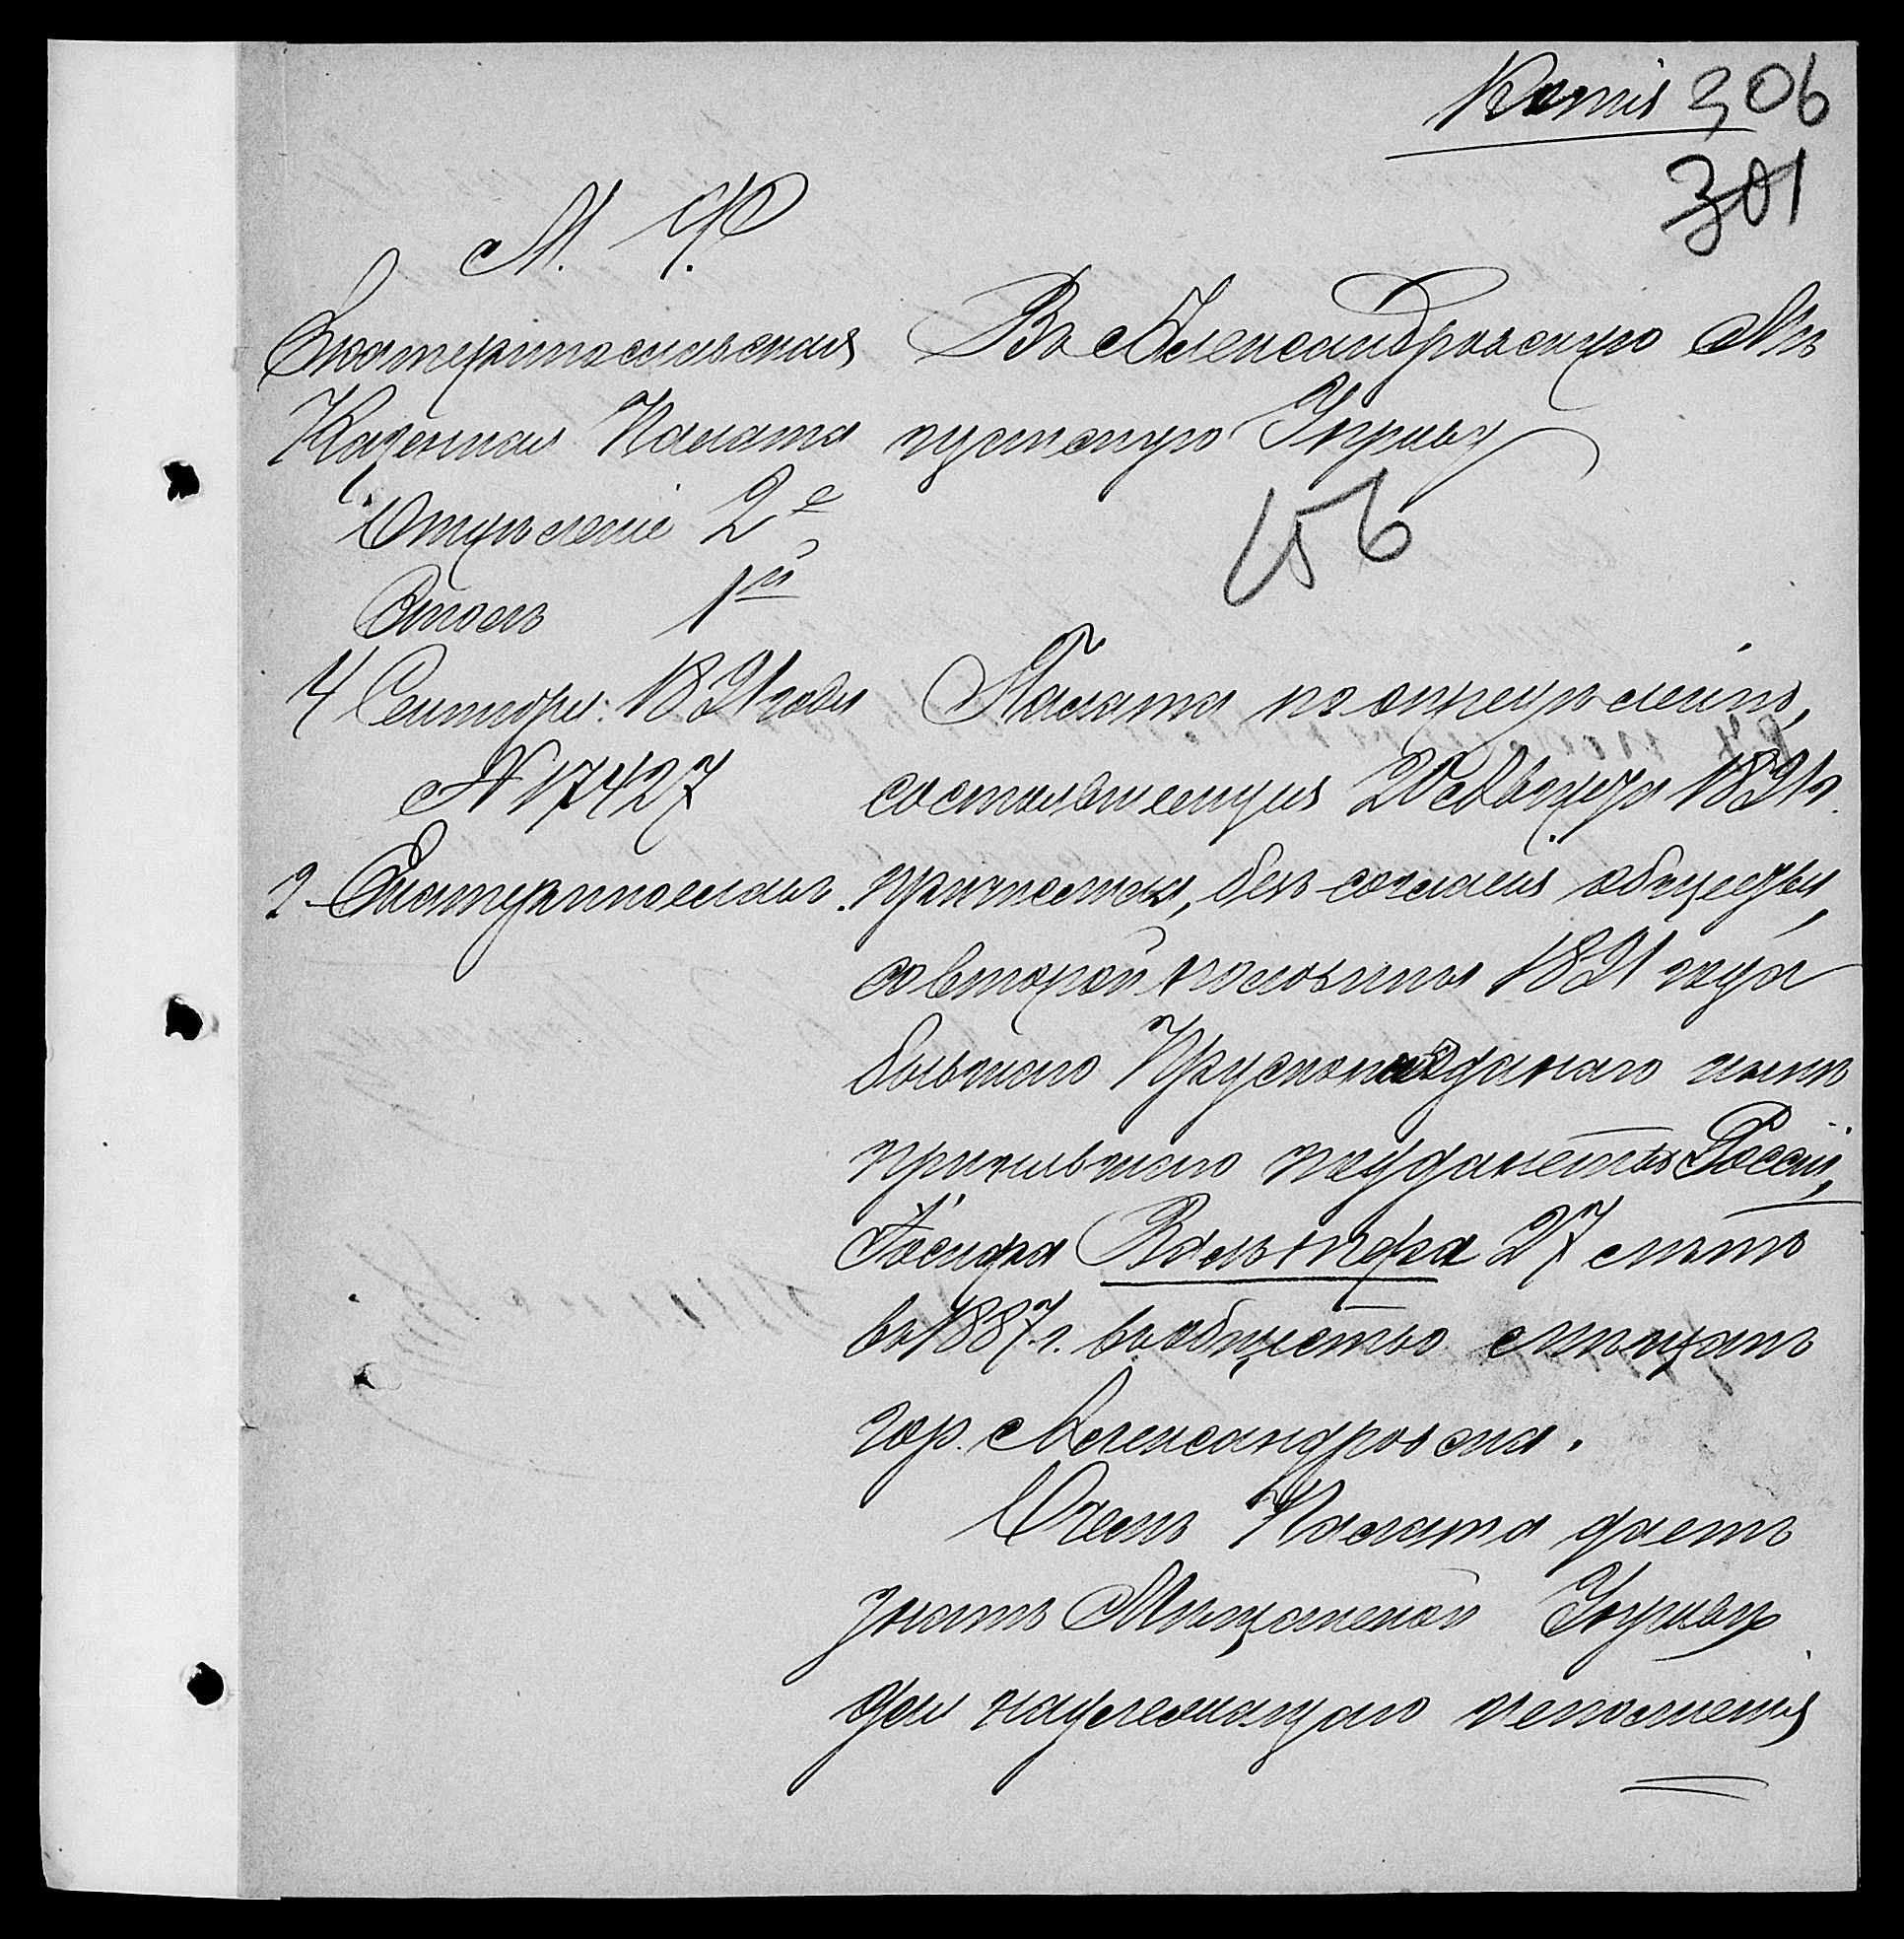 Копія 306
301
М. Ф.
Екатеринославская
Казенная Палата
Отдѣленіе 2е
Столъ 1й
4 Сентября 1891 года
№ 17427
г. Екатеринославъ.
Въ Александровскую Мѣ
щанскую Управу
156
Палата по опредѣленію,
состоявшемуся 20 Августа 1891 г.
причислила, безъ согласія общества,
со второй половины 1891 года
бывшаго Прусскоподданаго нынѣ
принявшаго подданство Россіи,
Іосифа Вальтера 27 лѣтъ
въ 1887 г. въ общество мѣщанъ
гор. Александровска.
О чемъ Палата даетъ
знать Мѣщанской Управѣ
для надлежащаго исполненія